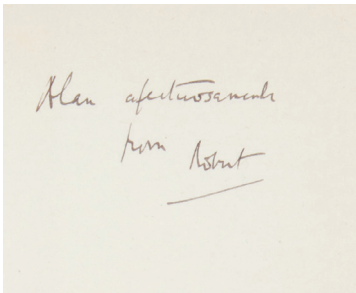 Alan afectuosamente
from
Robert